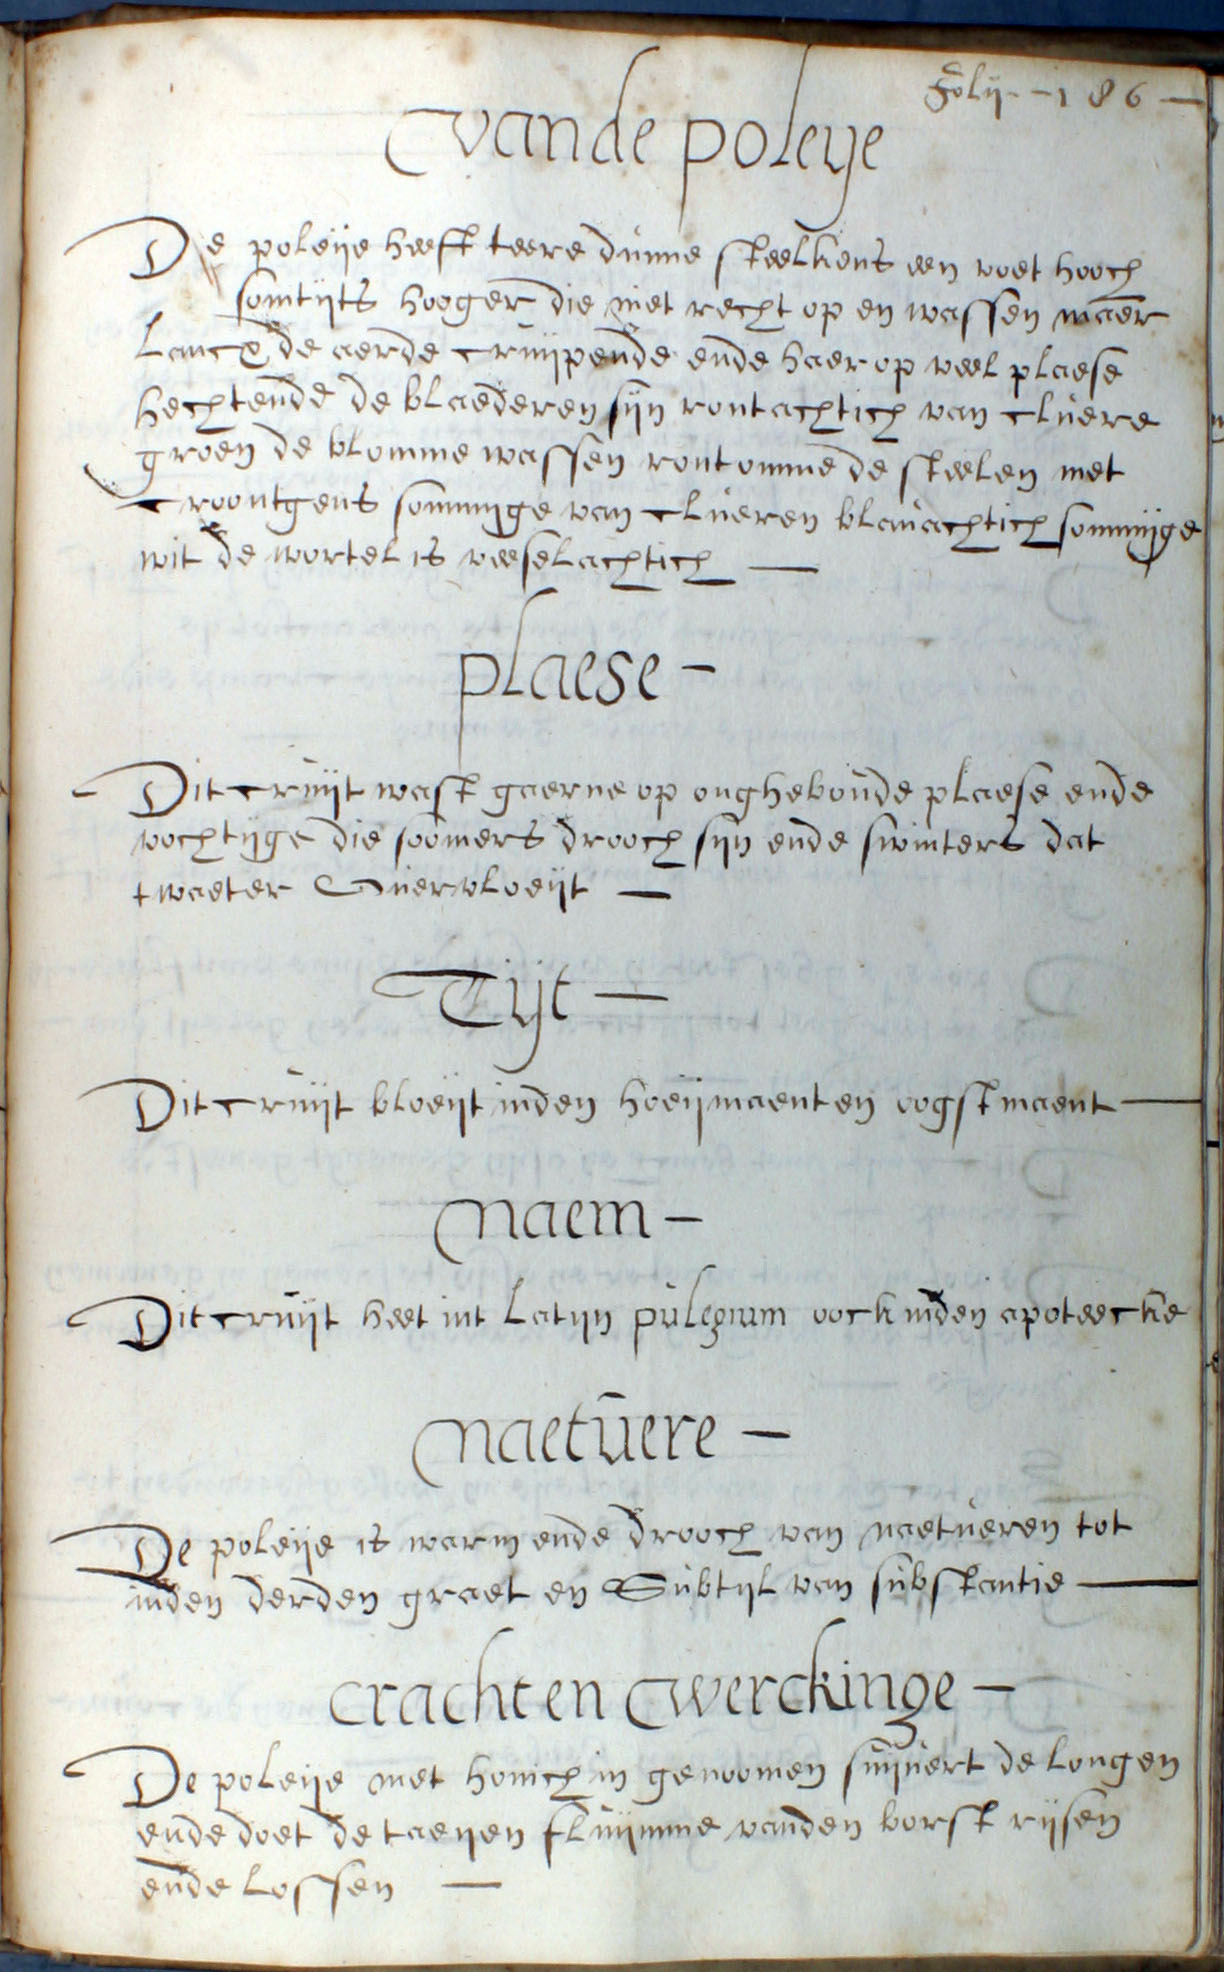 Folij - - 186 -
vande poleije
De poleije heeft teere dunne steelkens een voet hooch
somtijts hooger die niet recht op en wassen maer
lancx de aerde cruijpende ende haer op veel plaese
hechtende de blaederen sijn rontachtich van cluere
groen de blomme wassen rontomme de steelen met
croontgens sommige van clueren blauachtich sommijge
wit de wortel is veeselachtich —
plaese -
Dit cruijt wast gaerne op ongheboude plaese ende
vochtijge die soomers drooch sijn ende swinters dat
twaeter overvloeijt —
Tijt —
Dit cruijt bloeijt inden hoeijmaent en oogstmaent —
naem -
Dit cruijt heet int latijn pulegium oock inden apoteecke
naetuere -
De poleije is warm ende drooch van naetueren tot
inden derden graet en Subtijl van substantie —
cracht en werckinge -
De poleije met honich in genoomen suijvert de longen
ende doet de taeijen fluijmme vanden borst rijsen
ende lossen —